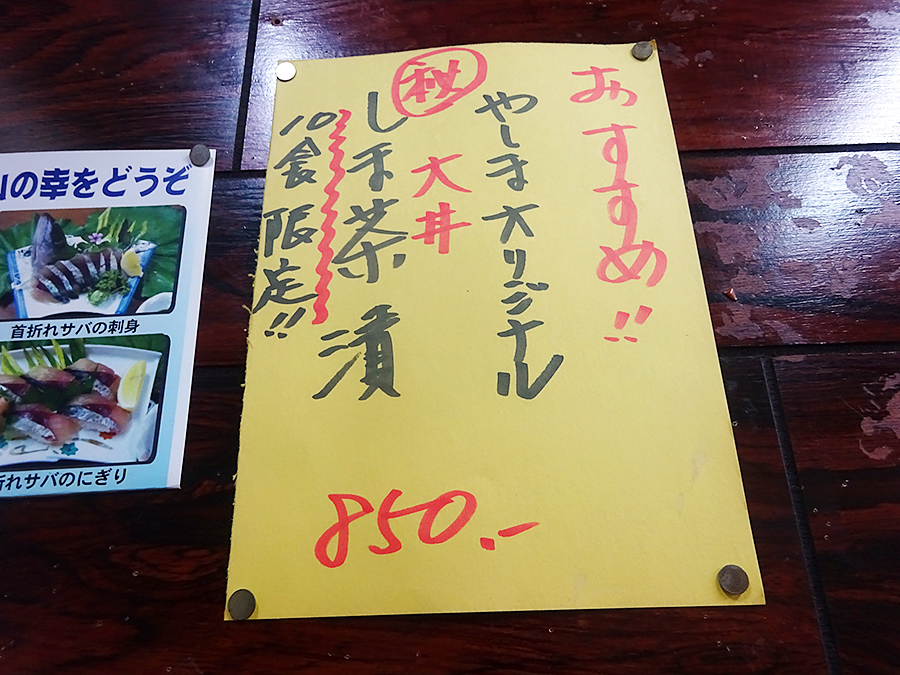 おすすめ!!
やしまオリジナル
秋 大井
しま茶漬
10食限定!!
850.-
の幸をどうぞ
首折れサバの刺身
折れサバのにぎり